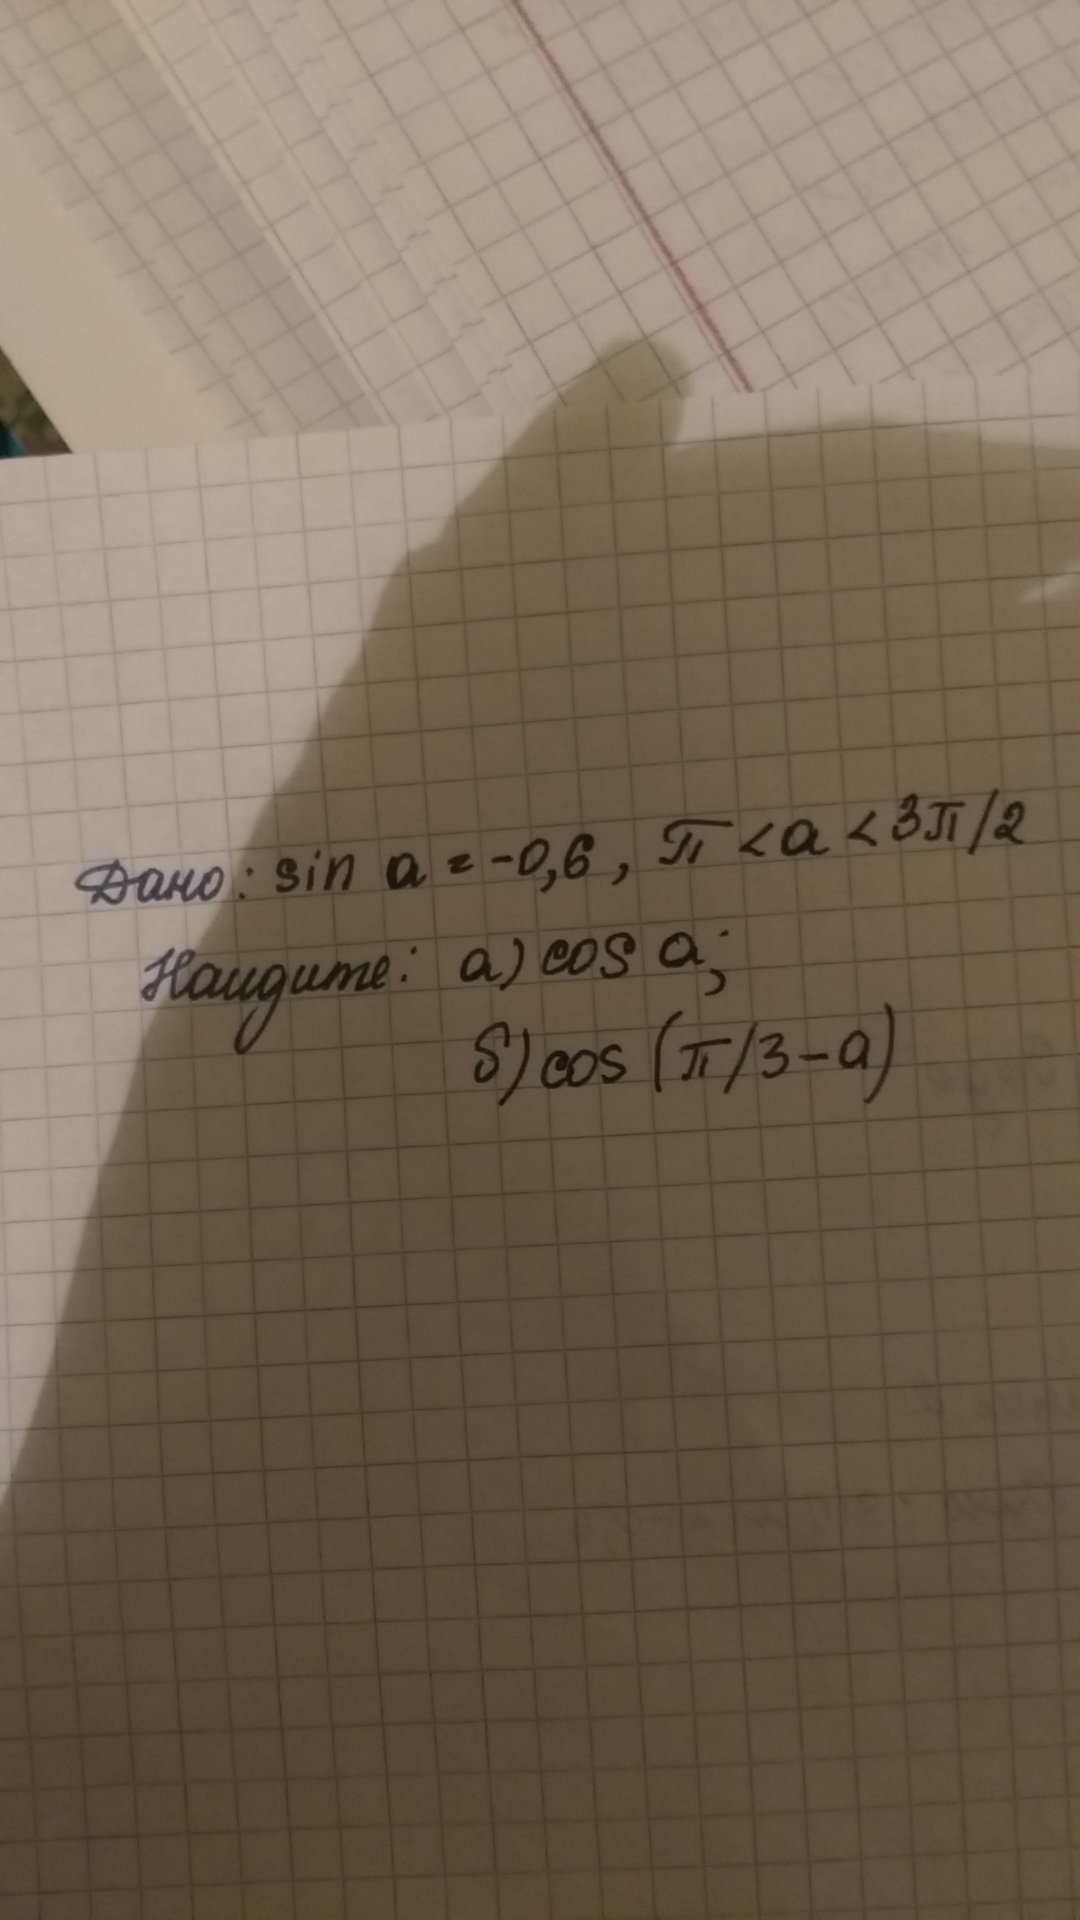 Дано: sin a = -0,6, π < a < 3π/2
Найдите: а) cos a;
б) cos (π/3 - a)